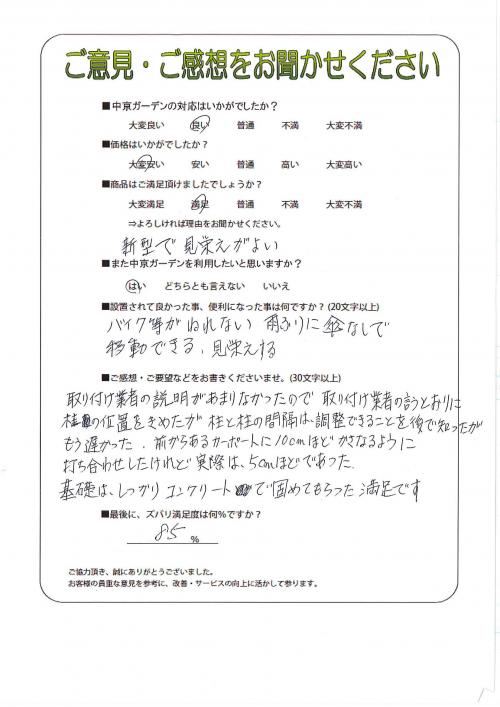 ご意見・ご感想をお聞かせください
■中京ガーデンの対応はいかがでしたか？
大変良い 良い 普通 不満 大変不満
■価格はいかがでしたか？
大変安い 安い 普通 高い 大変高い
■商品はご満足頂けましたでしょうか？
大変満足 満足 普通 不満 大変不満
⇒よろしければ理由をお聞かせください。
新型で見栄えがよい
■また中京ガーデンを利用したいと思いますか？
はい どちらとも言えない いいえ
■設置されて良かった事、便利になった事は何ですか？(20文字以上)
バイク等がぬれない 雨ふりに傘なしで
移動できる、見栄えする
■ご感想・ご要望などをお書きくださいませ。(30文字以上)
取り付け業者の説明があまりなかったので 取り付け業者の言うとおりに
柱の位置をきめたが 柱と柱の間隔は、調整できることを後で知ったが
もう遅かった．前からあるカーポートに10cmほどかさなるように
打ち合わせしたけれど実際は、5cmほどであった．
基礎は、しっかりコンクリートで固めてもらった満足です
■最後に、ズバリ満足度は何％ですか？
85 ％
ご協力頂き、誠にありがとうございました。
お客様の貴重な意見を参考に、改善・サービスの向上に活かして参ります。